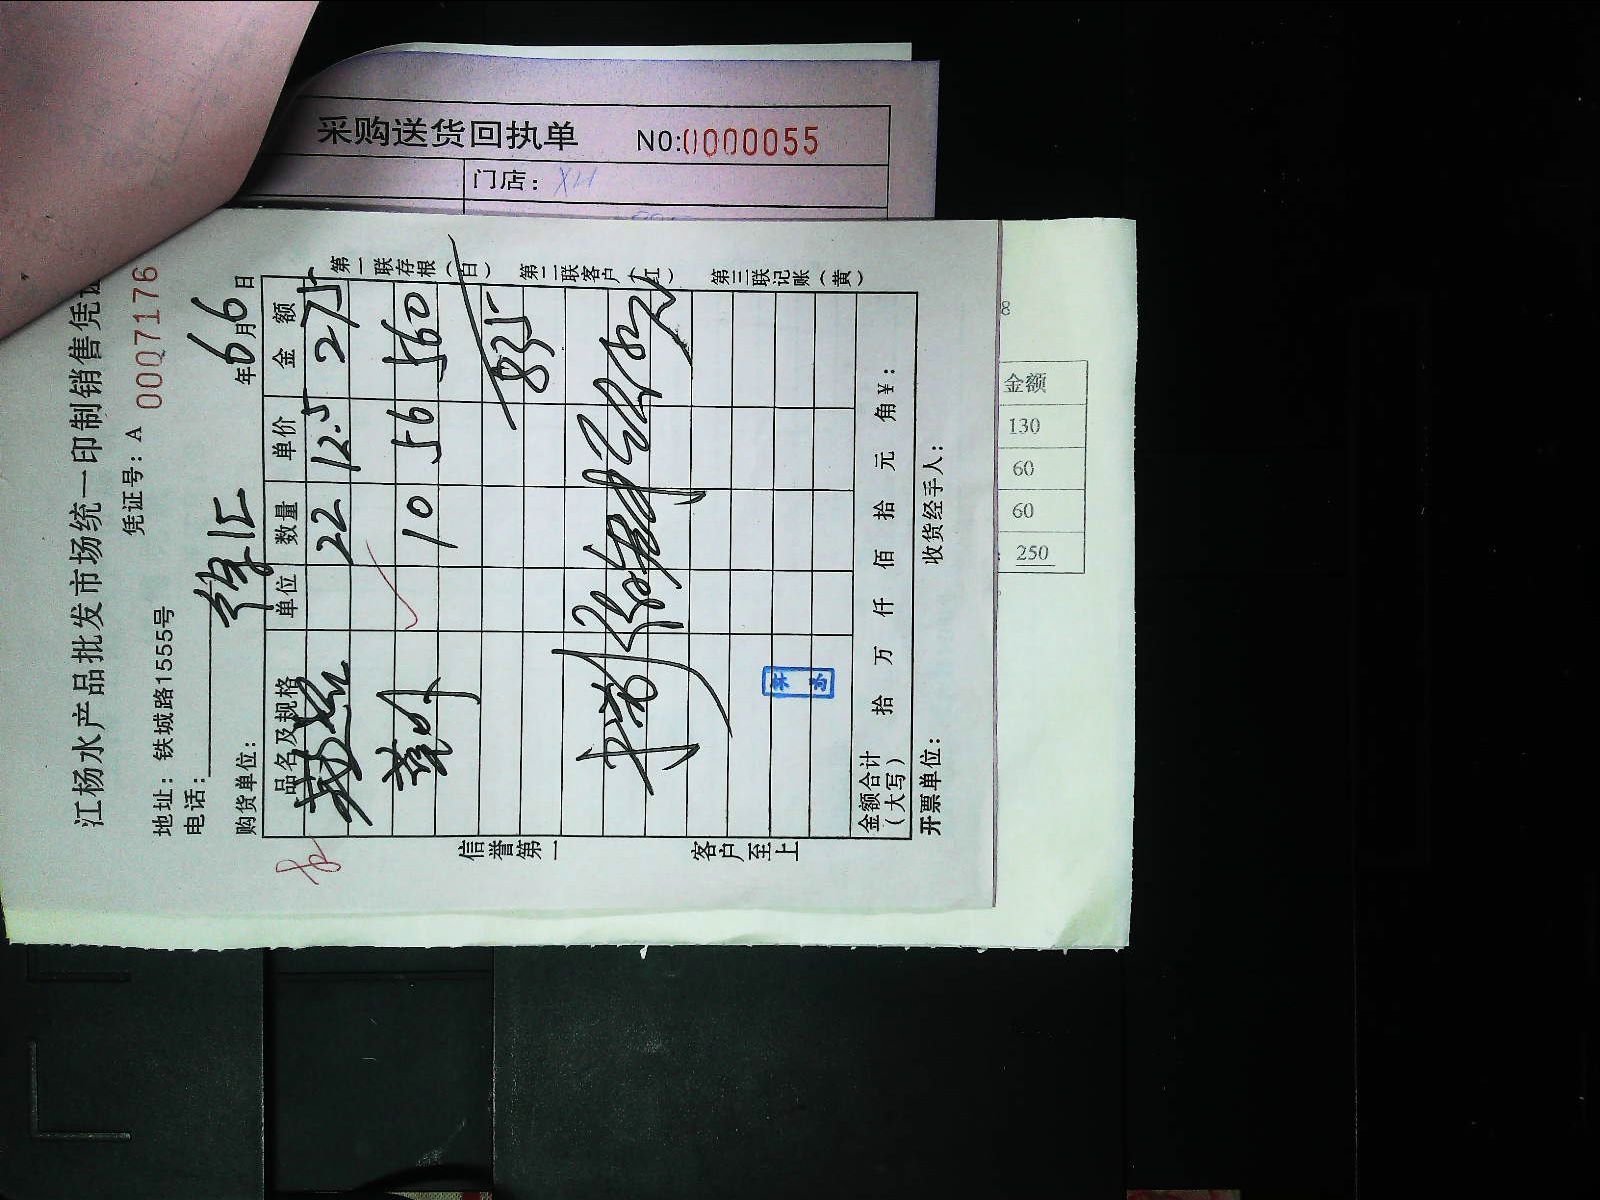 采购送货回执单 NO:0000055
门店: XH
江杨水产品批发市场统一印制销售凭证
凭证号: A 0007176
地址: 铁城路1555号
电话:
徐汇
购货单位: 年6月6日
品名及规格 单位 数量 单价 金额
22 12.5 275
10 56 560
835
金额合计(大写) 拾 万 仟 佰 拾 元 角 ¥:
开票单位: 收货经手人:
信誉第一 客户至上
第一联存根(白) 第二联客户(红) 第三联记账(黄)
金额
130
60
60
250